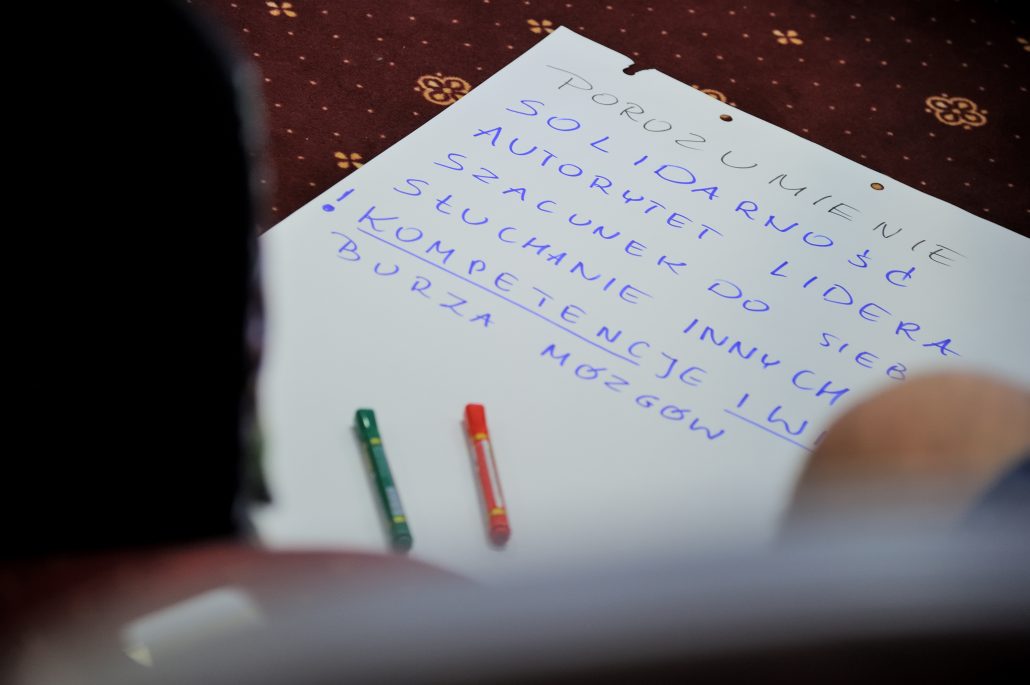 POROZUMIENIE
SOLIDARNOŚĆ
AUTORYTET LIDERA
SZACUNEK DO
SŁUCHANIE INNYCH
! KOMPETENCJE I
BURZA MÓZGÓW